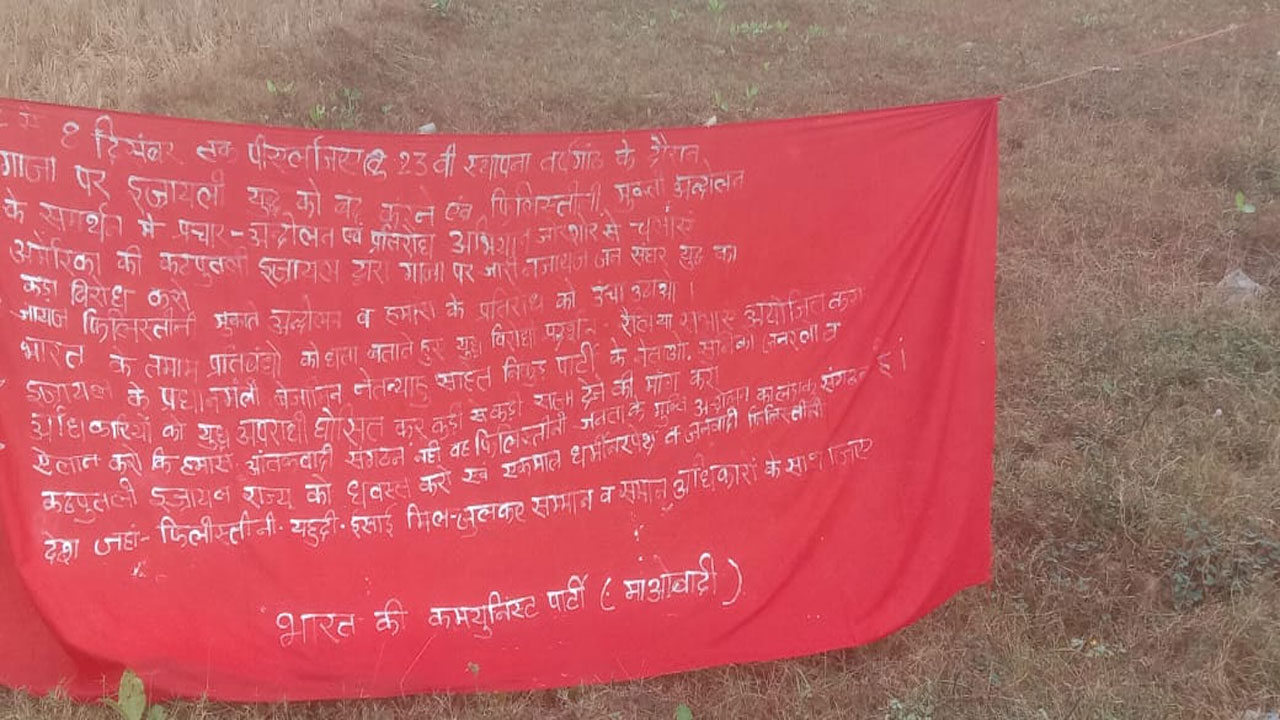 8 दिसंबर तक पीएलजिए 23 वी स्थापना वर्षगांठ के दौरान
गाजा पर इज्रायली युद्ध को बंद करने एवं फिलिस्तीनी मुक्ती अन्दोलन
के समर्थन मे प्रचार-अन्दोलन एवं प्रतिरोध अभियान जोरशोर से चलाएं
अमेरिका की कटपुतली इज्रायल द्वारा गाजा पर जारी नाजायज जन संहार युद्ध का
कड़ा विरोध करो
जायज फिलिस्तीनी मुक्ति अन्दोलन व हमास के प्रतिरोध को उंचा उठाओ।
भारत के तमाम प्रतिबंधो को धता बताते हुए युद्ध विरोधी प्रदर्शन- रैलीया सभाएं आयोजित करो
इज्रायल के प्रधानमंत्री नेतन्याहु सहित पार्टी के नेताओ, व
अधिकारियों को युद्ध अपराधी घोसित कर कड़ी से कड़ी सजा देने की मांग करो
ऐलान करो कि हमास आंतकवादी संगठन नही वह फिलिस्तीनी जनता के मुक्ति अन्दोलन का लड़ाकू संगठन है।
कटपुतली इज्रायल राज्य को ध्वस्त करो एकमात्र धर्मनिरपेक्ष व जनवादी फिलिस्तीनी
देश जहां- फिलीस्तीनी- यहुदी- इसाई मिल-जुलकर सम्मान व समान अधिकारों के साथ जिए
भारत की कमयुनिस्ट पार्टी (माओवादी)